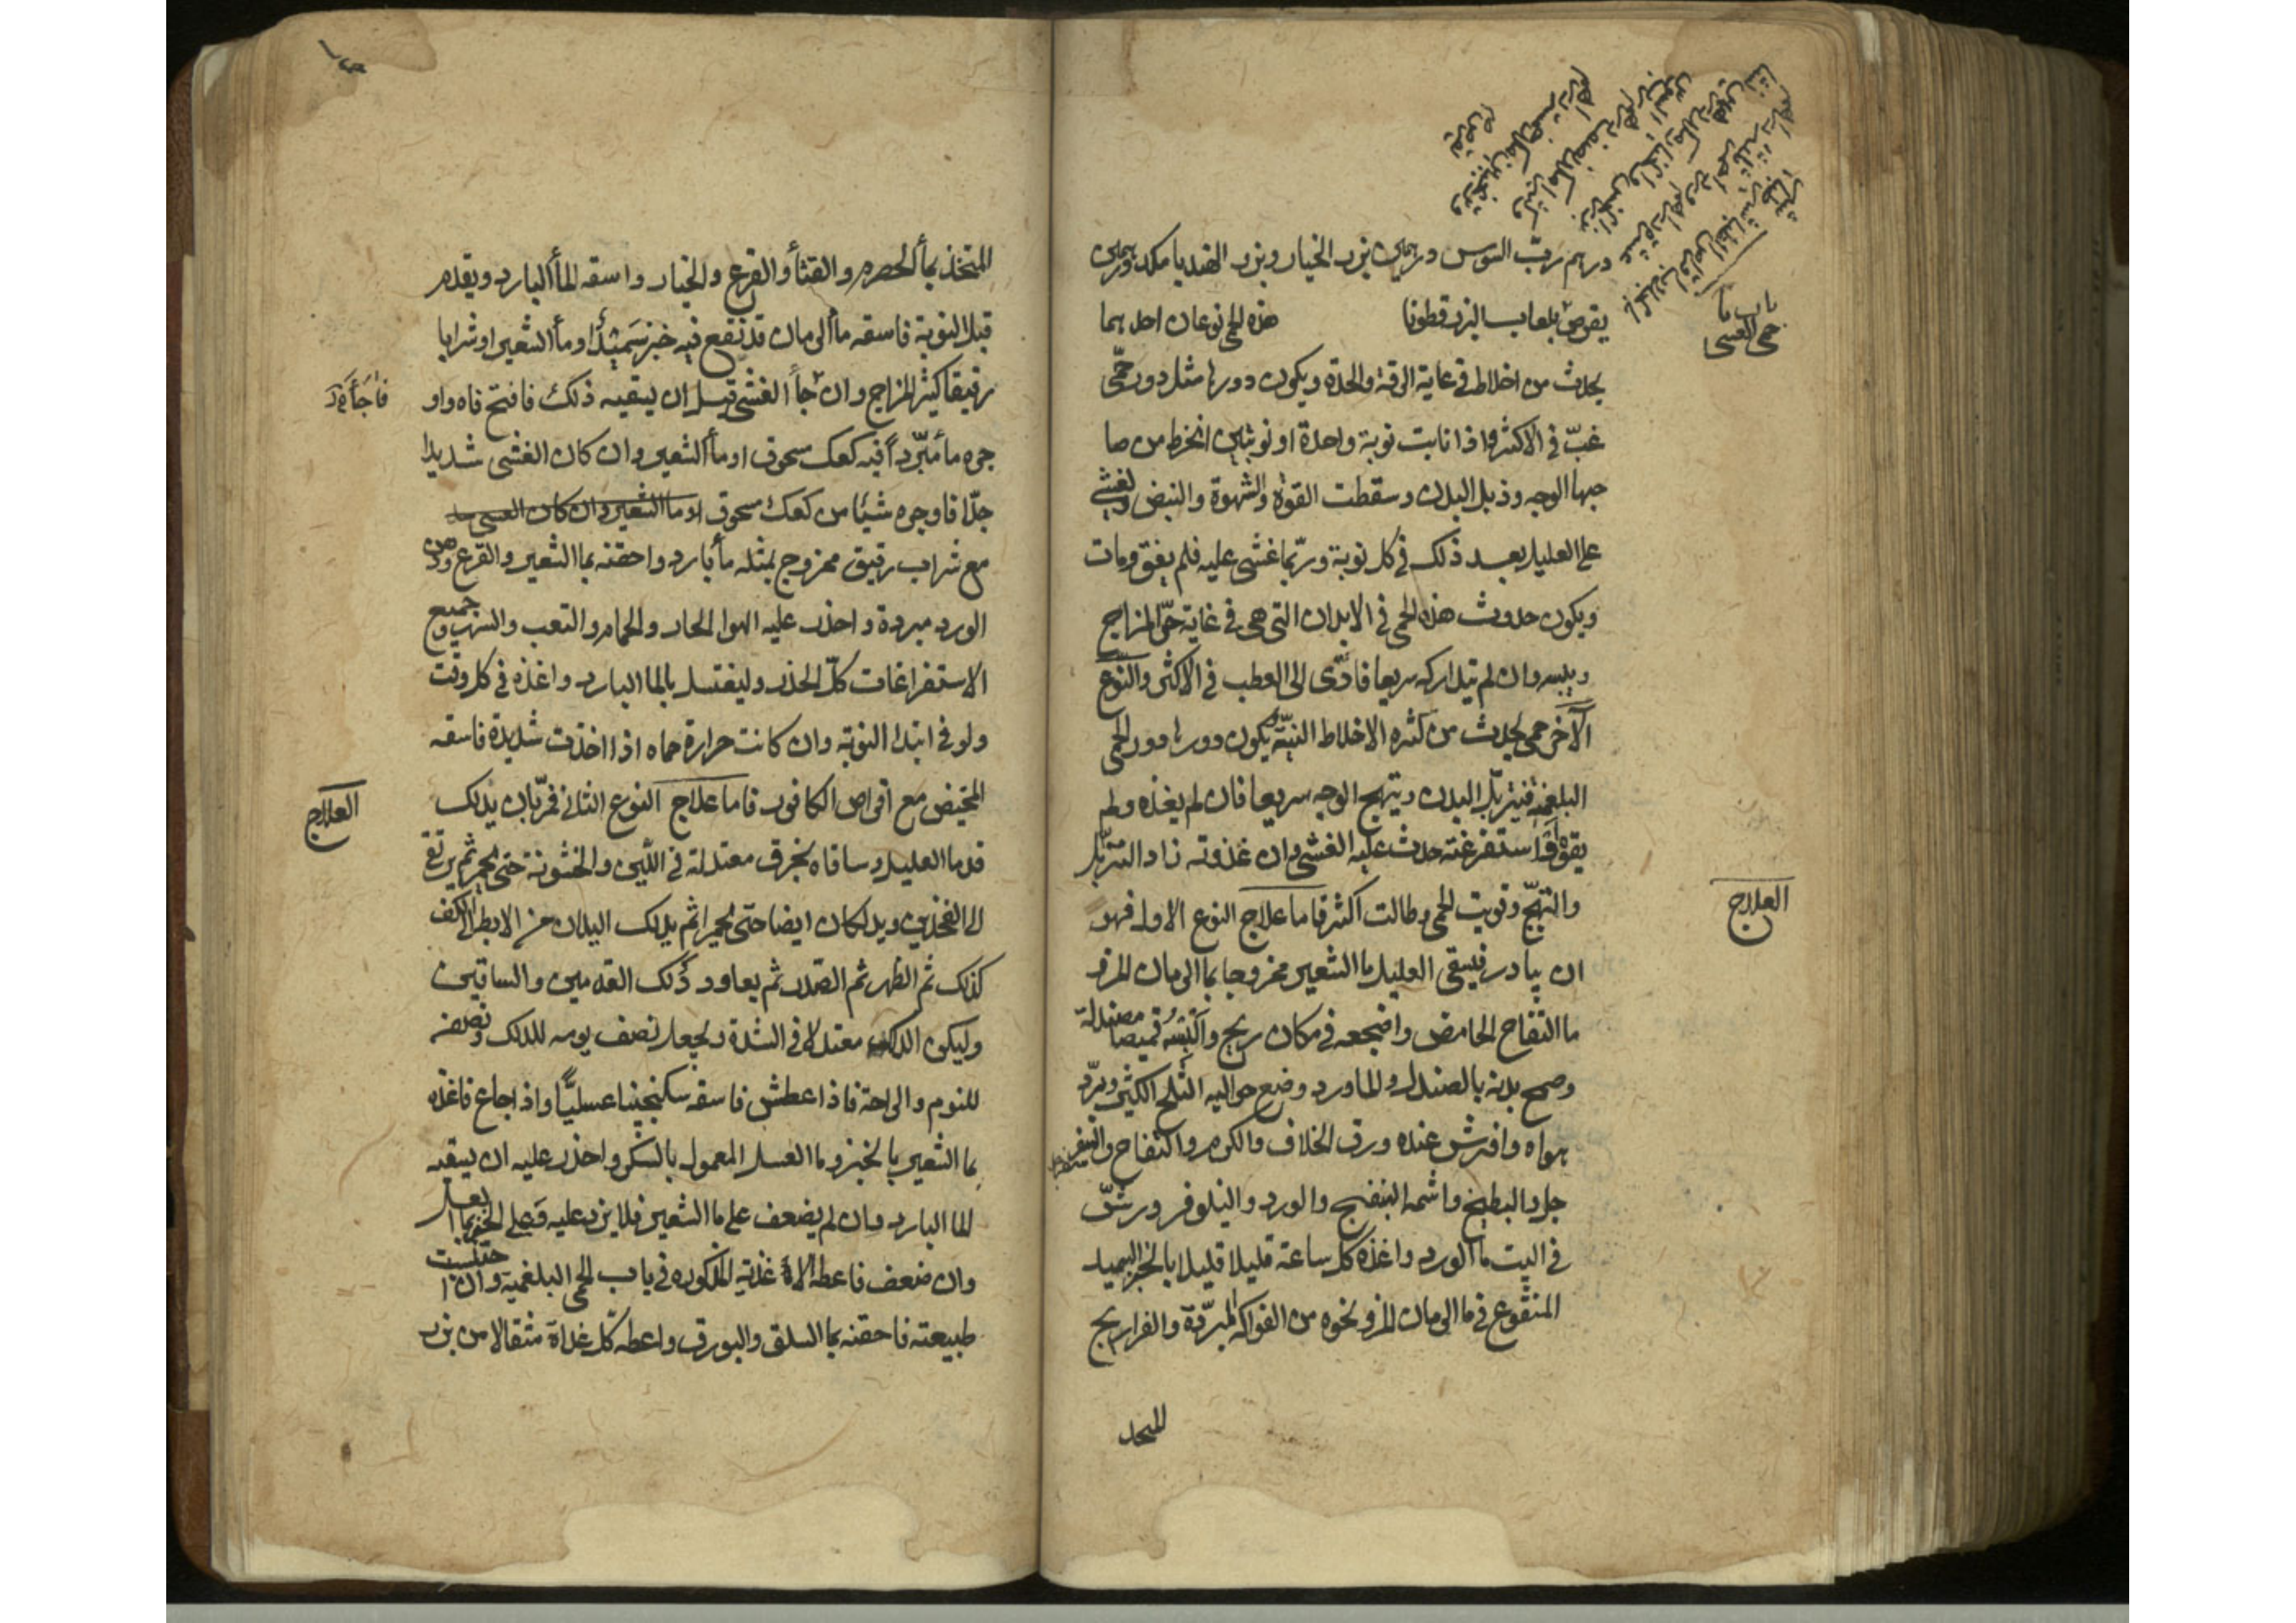 درهم ربّ السوس درهمين بزر الخيار وبزر الهندبا مكد درهمين
يقرص بلعاب البزرقطونا هذه الحمى نوعان احدهما
باب ما
حمى الغشى
يحدث من اخلاط في غاية الرقة والحدة ويكون دورها مثل دور حمّى
غبّ في الاكثر واذا نابت نوبة واحدة او نوبتين انخرط من صا
حبها الوجه وذبل البدن وسقطت القوة والشهوة والنبض ولغشى
على العليل بعد ذلك في كل نوبة وربّما غشى عليه فلم يفق ومات
ويكون حدوث هذه الحمى في الابدان التي هي في غاية حرّ المزاج
ويبسه وان لم تتداركه سريعا فادّى الى العطب في الاكثر والنّوع
الآخر حمى يحدث من كثره الاخلاط النيّة ويكون دورها دور الحمى
البلغمية فيتربّل البدن ويتهيج الوجه سريعا فان لم يغذه ولم
يقوه واستفرغته حدث عليه الغشى وان غذوته زاد التربّل
والتهيّج وقويت الحمى وطالت اكثر فاما علاج النوع الاول فهو
العلاج
ان يبادر فيسقى العليل ما الشعير ممزوجا بما الرمان المز و
ما التفاح الحامض واضجعه في مكان ريح وألبسه قميصا مصندلة
وصمح بدنه بالصندل والماورد وضع حواليه الثلج الكثير وبرّد
هواه وافرش عنده ورق الخلاف والكرم والتفاح والسفر
جل والبطيخ واشمه البنفسج والورد والنيلوفر ورشّ
في البيت ما الورد واغذه كل ساعة قليلا قليلا بالخبز السميد
المنقوع في ما الرمان المز ونحوه من الفواكه المبرّدة والفراريج
المتخذ
المتخذ بمأ الحصرم والقثأ والقرع والخيار واسقه المأ البارد ويقدم
قبل النوبة فاسقه مأ الرمان قد نقع فيه خبز سميذا او مأ الشعير او شرابا
رقيقا كثير المزاج وان جأ الغشى قبل ان يسقيه ذلك فافتح فاه واو
جره مأ مبرّدا فيه كعك مسحوق او مأ الشعير وان كان الغشى شديدا
جدّا فاوجره شيئا من كعك مسحوق او ما الشعير وان كان الغشى
مع شراب رقيق ممزوج بمثله مأ بارد واحقنه بما الشعير والقرع ودهن
الورد مبردة واحذر عليه الهوا الحار والحمام والتعب والسهر وجميع
الاستفراغات كلّ الحذر وليغتسل بالما البارد واغذه في كل وقت
ولو في ابتدا النوبة وان كانت حرارة حماه اذا اخذت شديدة فاسقه
المخيض مع اقراص الكافور فاما علاج النوع الثاني فمر بان يدلك
العلاج
قدما العليل وساقاه بخرق معتدلة في اللين والخشونة حتى يحمر ثم يرتقع
الى الفخذين ويدلكان ايضا حتى يحمرا ثم يدلك اليدان من الابط الى الكف
كذلك ثم الظهر ثم الصدر ثم يعاود دلك القدمين والساقين
وليكن الدلك معتدلا في الشدة ويجعل نصف يومه للدلك ونصفه
للنوم والراحة فاذا عطش فاسقه سكنجبينا عسليّا واذا جاع فاغذه
بما الشعير بالخبز وما العسل المعمول بالسكر واحذر عليه ان يسقيه
الما البارد وان لم يضعف على ما الشعير فلا يزد عليه
وان ضعف فاعطه الاغذية المذكوره في باب الحمى البلغمية وان احتبست
طبيعته فاحقنه بما السلق والبورق واعطه كلّ غداة مثقالا من بزر